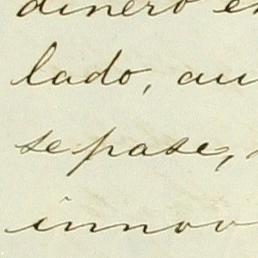 dinero e
lado, au
sepase,
innov